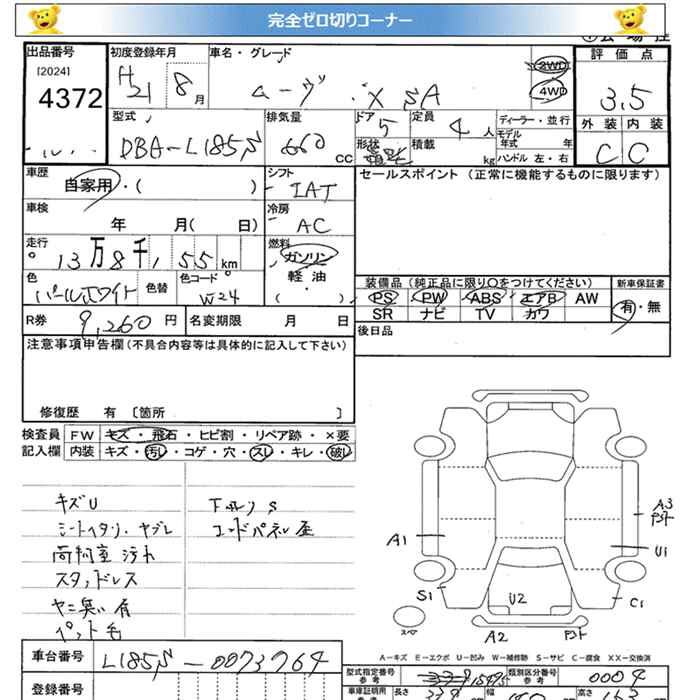 完全ゼロ切りコーナー
出品番号 初度登録年月 車名・グレード
[2024] H21 8月 ムーヴ X SA 2WD 4WD
4372
評価点
3.5
外装 内装
C C
型式 排気量 ドア 定員 ディーラー・並行
DBA-L185S 660 CC 5 4人 モデル年式 年
形状 積載 kg ハンドル 左・右
車歴 シフト セールスポイント (正常に機能するものに限ります)
自家用・( ) IAT
車検 冷房
年 月( 日) AC
走行 燃料
13万8千,155km ガソリン
軽油
( )
色 色替 色コード
パールホワイト W24
装備品 (純正品に限り○をつけてください) 新車保証書
PS PW ABS エアB AW 有・無
SR ナビ TV カワ
R券 9,260円 名変期限 月 日
後日品
注意事項申告欄(不具合内容等は具体的に記入して下さい)
修復歴 有 [箇所 ]
検査員 FW キズ・飛石・ヒビ割・リペア跡・×要
記入欄 内装 キズ・汚レ・コゲ・穴・スレ・キレ・破レ
キズU
シートヘタリ・ヤブレ
荷物室汚れ
スタッドレス
ヤニ臭い有
ペット毛
下廻りS
コードパネル歪
A3
U1
A1
S1
U2
C1
A2
スペア
A-キズ E-エクボ U-凹み W-補修跡 S-サビ C-腐食 XX-交換済
車台番号 L185S-0073764
登録番号
型式指定番号 参考 類別区分番号 参考 0004
車庫証明用 長さ 339 幅 高さ